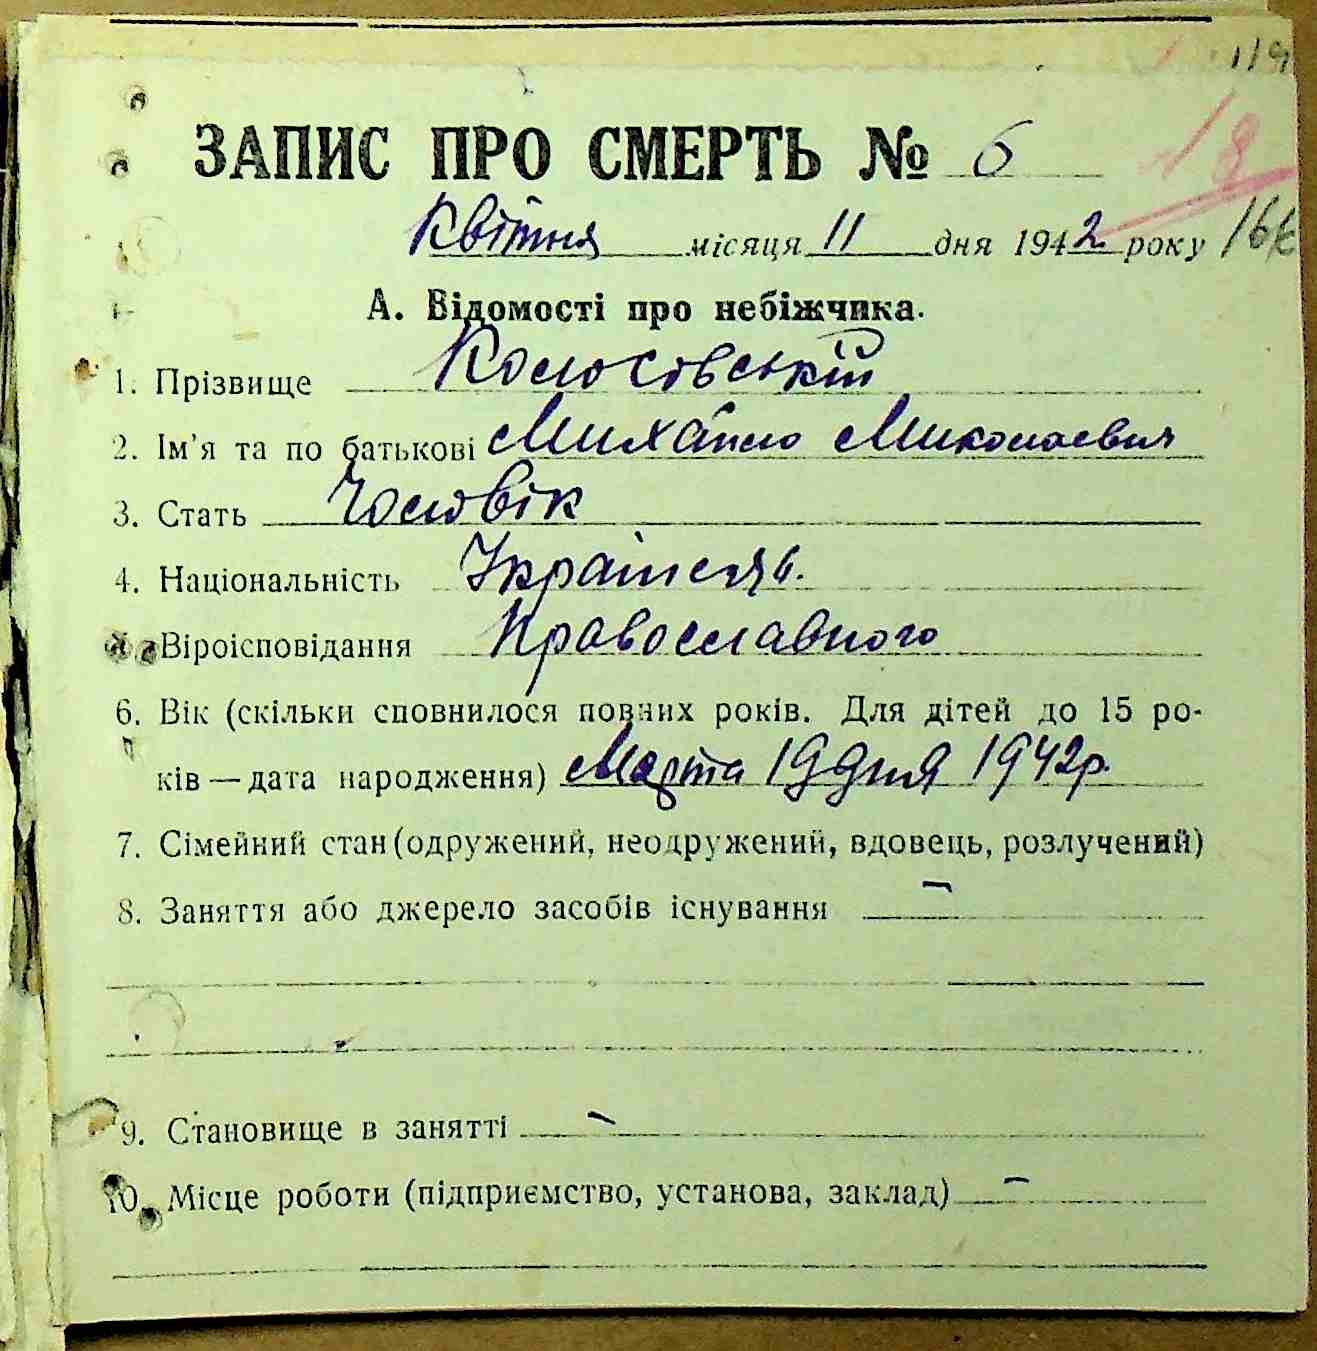 119
18
ЗАПИС ПРО СМЕРТЬ № 6
Квітня місяця 11 дня 1942 року 166
А. Відомості про небіжчика.
1. Прізвище Колосовський
2. Ім'я та по батькові Михайло Миколаевич
3. Стать Чоловік
4. Національність Українець.
Віроісповідання Православного
6. Вік (скільки сповнилося повних років. Для дітей до 15 ро-
ків — дата народження) Марта 19 дня 1942 р.
7. Сімейний стан (одружений, неодружений, вдовець, розлучений)
8. Заняття або джерело засобів існування —
9. Становище в занятті —
10. Місце роботи (підприємство, установа, заклад) —